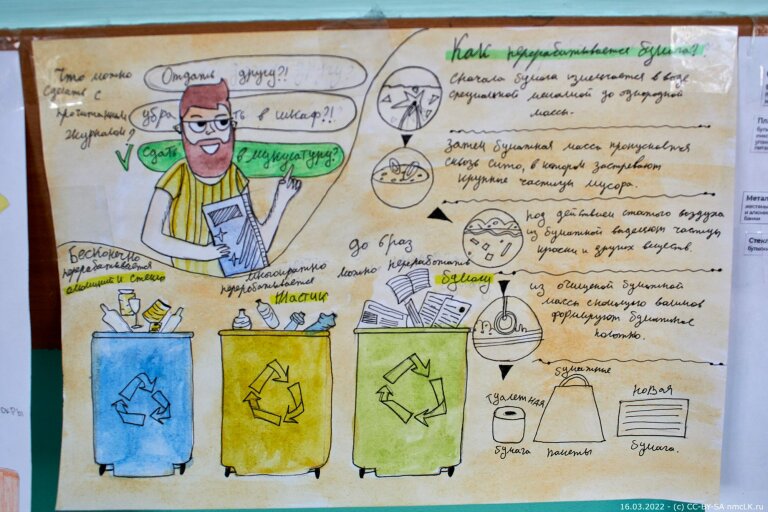 Что можно
сделать с
прочитанным
журналом?
Отдать другу?!
убрать в шкаф?!
Сдать в макулатуру?
Бесконечно
перерабатывается
алюминий и стекло
многократно
перерабатывается
Пластик
до 6 раз
можно переработать
бумагу
Как перерабатывается бумага?
Сначала бумага измельчается в воде
специальной мешалкой до однородной
массы.
Затем бумажная масса пропускается
сквозь сито, в котором застревают
крупные частицы мусора.
под действием сжатого воздуха
из бумажной выделяют частицы
краски и других веществ.
из очищеной бумажной
массы с помощью валиков
формируют бумажное
полотно.
туалетная
бумага
бумажные
пакеты
новая
бумага.
Метал
Стекл
16.03.2022 - (c) CC-BY-SA nmcLK.ru